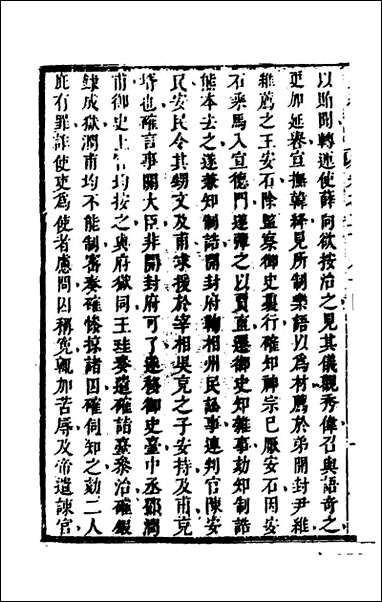 以賄聞轉運使薛向欲按治之見其儀觀秀偉召與語奇之
更加延譽宣撫韓絳見所制樂語以爲材薦於弟開封尹維
維薦之王安石除監察御史裏行確知神宗已厭安石因安
石乘馬入宣德門遂彈之以賈直遷御史知雜事劾知制誥
熊本去之遂兼知制誥開封府鞠相州民訟事連判官陳安
民安民令其甥文及甫求援於宰相吳充之子安持及甫充
壻也確言事關大臣非開封府可了遂移御史臺中丞鄧潤
甫御史上官均按之與府獄同王珪奏遣確詣臺參治確鍛
鍊成獄潤甫均不能制密奏確慘掠諸囚確伺知之劾二人
庇有罪詐使吏爲使者慮問囚稱冤輒加苦辱及帝遣諫官